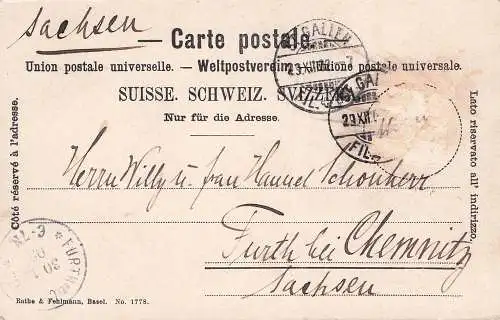 Sachsen
Carte postale.
Union postale universelle. — Weltpostverein. — Unione postale universale.
SUISSE. SCHWEIZ. SVIZZERA.
Nur für die Adresse.
Côté réservé à l'adresse.
Lato riservato all' indirizzo.
ST. GALLEN
29.XII
FIL.
GAL
29.XII
FIL.
Herrn Willy u. frau Hannel Schönherr
Furth bei Chemnitz
Sachsen
FURTH
30
Rathe & Fehlmann, Basel. No. 1778.